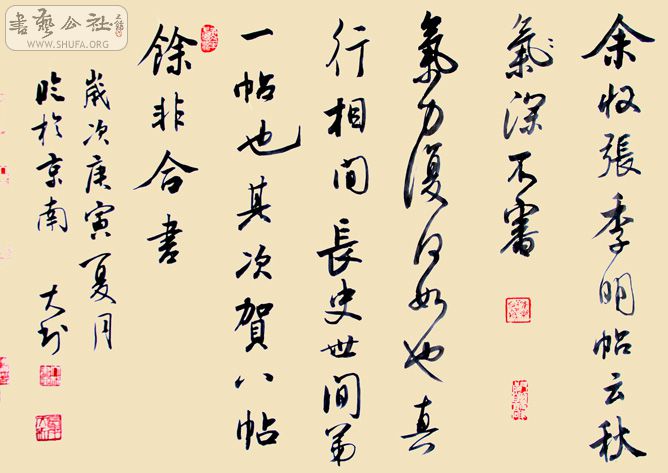 書藝公社
WWW.SHUFA.ORG
余收張季明帖云秋
氣深不審
氣力復何如也真
行相間長史世間第
一帖也其次賀八帖
餘非合書
歲次庚寅夏月
臨於京南 大